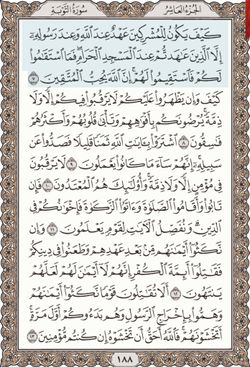 الجزء العاشر
سورة التوبة
كَيْفَ يَكُونُ لِلْمُشْرِكِينَ عَهْدٌ عِندَ ٱللَّهِ وَعِندَ رَسُولِهِۦٓ
إِلَّا ٱلَّذِينَ عَٰهَدتُّمْ عِندَ ٱلْمَسْجِدِ ٱلْحَرَامِ فَمَا ٱسْتَقَٰمُوا۟
لَكُمْ فَٱسْتَقِيمُوا۟ لَهُمْ إِنَّ ٱللَّهَ يُحِبُّ ٱلْمُتَّقِينَ ٧
كَيْفَ وَإِن يَظْهَرُوا۟ عَلَيْكُمْ لَا يَرْقُبُوا۟ فِيكُمْ إِلًّا وَلَا
ذِمَّةً يُرْضُونَكُم بِأَفْوَٰهِهِمْ وَتَأْبَىٰ قُلُوبُهُمْ وَأَكْثَرُهُمْ
فَٰسِقُونَ ٨ ٱشْتَرَوْا۟ بِـَٔايَٰتِ ٱللَّهِ ثَمَنًا قَلِيلًا فَصَدُّوا۟ عَن
سَبِيلِهِۦٓ إِنَّهُمْ سَآءَ مَا كَانُوا۟ يَعْمَلُونَ ٩ لَا يَرْقُبُونَ
فِى مُؤْمِنٍ إِلًّا وَلَا ذِمَّةً وَأُو۟لَٰٓئِكَ هُمُ ٱلْمُعْتَدُونَ ١٠ فَإِن
تَابُوا۟ وَأَقَامُوا۟ ٱلصَّلَوٰةَ وَءَاتَوُا۟ ٱلزَّكَوٰةَ فَإِخْوَٰنُكُمْ
فِى ٱلدِّينِ وَنُفَصِّلُ ٱلْـَٔايَٰتِ لِقَوْمٍ يَعْلَمُونَ ١١ وَإِن
نَّكَثُوٓا۟ أَيْمَٰنَهُم مِّنۢ بَعْدِ عَهْدِهِمْ وَطَعَنُوا۟ فِى دِينِكُمْ
فَقَٰتِلُوٓا۟ أَئِمَّةَ ٱلْكُفْرِ إِنَّهُمْ لَآ أَيْمَٰنَ لَهُمْ لَعَلَّهُمْ
يَنتَهُونَ ١٢ أَلَا تُقَٰتِلُونَ قَوْمًا نَّكَثُوٓا۟ أَيْمَٰنَهُمْ
وَهَمُّوا۟ بِإِخْرَاجِ ٱلرَّسُولِ وَهُم بَدَءُوكُمْ أَوَّلَ مَرَّةٍ
أَتَخْشَوْنَهُمْ فَٱللَّهُ أَحَقُّ أَن تَخْشَوْهُ إِن كُنتُم مُّؤْمِنِينَ ١٣
١٨٨